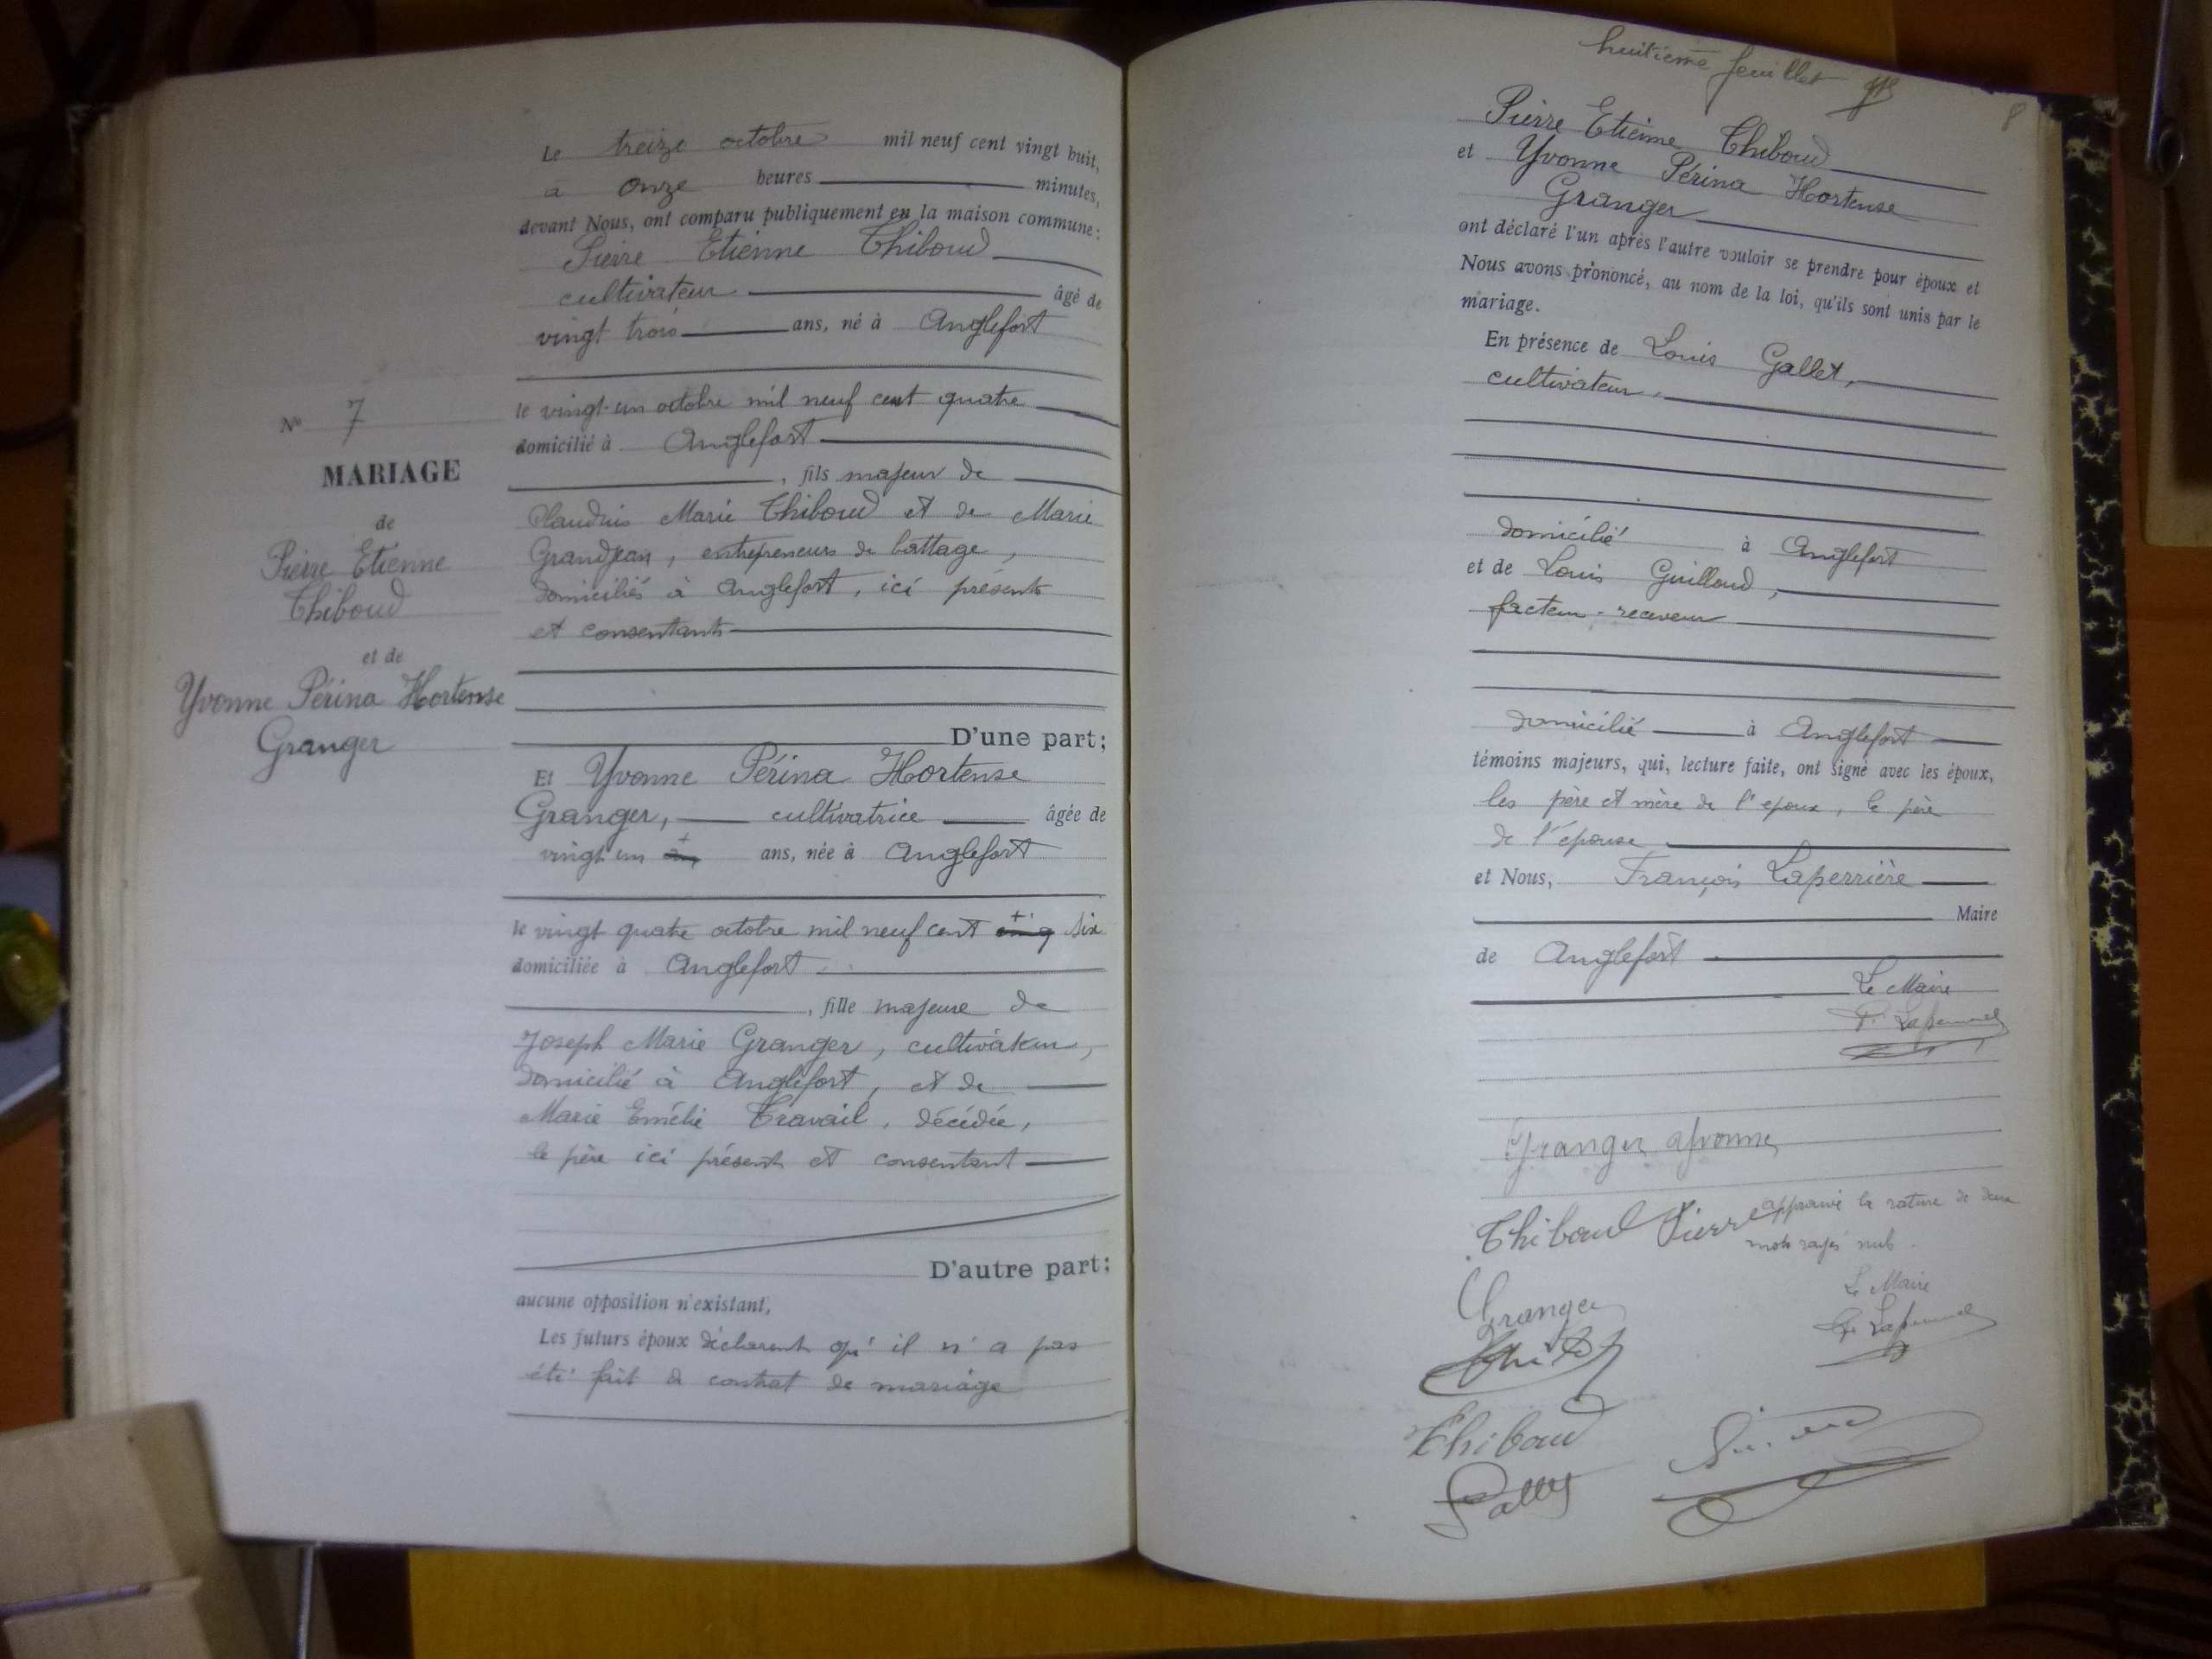 Le treize octobre mil neuf cent vingt huit,
à onze heures minutes,
devant Nous, ont comparu publiquement en la maison commune :
Pierre Etienne Thiboud
cultivateur âgé de
vingt trois ans, né à Anglefort
le vingt-un octobre mil neuf cent quatre
domicilié à Anglefort
, fils majeur de
Claudius Marie Thiboud et de Marie
Grandjean, entrepreneurs de battage,
domiciliés à Anglefort, ici présents
et consentants
D'une part;
Et Yvonne Périna Hortense
Granger, cultivatrice âgée de
vingt un ans, née à Anglefort
le vingt quatre octobre mil neuf cent cinq six
domiciliée à Anglefort
, fille majeure de
Joseph Marie Granger, cultivateur,
domicilié à Anglefort, et de
Marie Emélie Travail, décédée,
le père ici présent et consentant
D'autre part;
aucune opposition n'existant,
Les futurs époux déclarent qu'il n'a pas
été fait de contrat de mariage
No 7
MARIAGE
de
Pierre Etienne
Thiboud
et de
Yvonne Périna Hortense
Granger
huitième feuillet
8
Pierre Etienne Thiboud
et Yvonne Périna Hortense
Granger
ont déclaré l'un après l'autre vouloir se prendre pour époux et
Nous avons prononcé, au nom de la loi, qu'ils sont unis par le
mariage.
En présence de Louis Gallet,
cultivateur,
domicilié à Anglefort
et de Louis Guilloud,
facteur-receveur
domicilié à Anglefort
témoins majeurs, qui, lecture faite, ont signé avec les époux,
les père et mère de l'epoux, le père
de l'épouse
et Nous, François Laperrière
Maire
de Anglefort
Le Maire
Granger Yvonne
Thiboud Pierre
approuvé la rature de deux
mots rayés nuls.
Le Maire
Granger
Thiboud